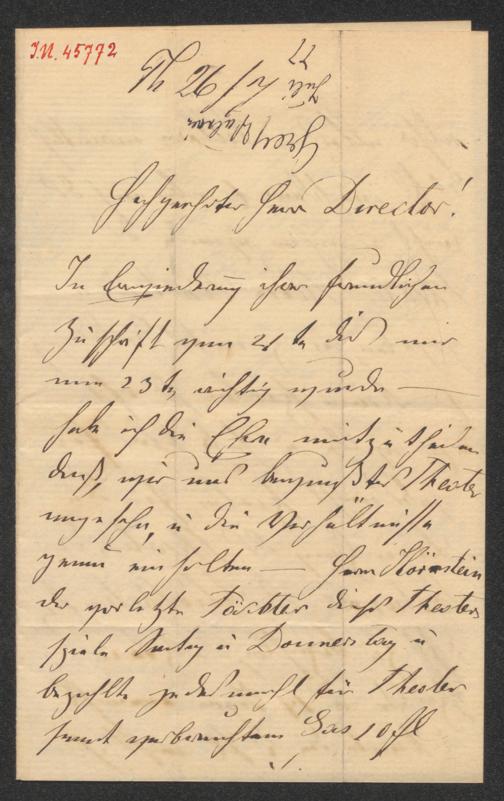 I.N. 45772
Th 26/7
Juli 77
Hochgeehrter Herr Director!
In Erwiederung ihrer freundlichen
Zuschrift vom 21 t die mir
am 23 t richtig wurde —
habe ich die Ehre mitzutheilen
daß, wir uns bewußtes Theater
angesehn, u die Verhältnisse
genau einholten — Herr Hörnstein
der vorletzte Pächter dieses Theaters
spielte Sontag u Donnerstag u
bezahlte jedesmahl für Theater
sammt verbrauchtem Gas 10 fl